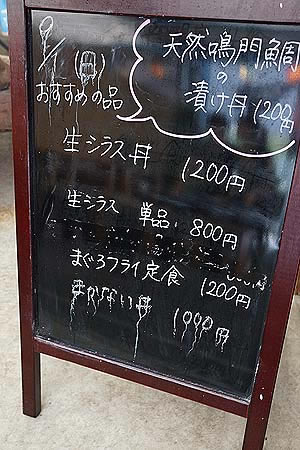 9/1(月)
おすすめの品
天然鳴門鯛
の
漬け丼 1200円
生シラス丼 1200円
生シラス 単品 800円
まぐろフライ定食 1200円
まかない丼 1000円